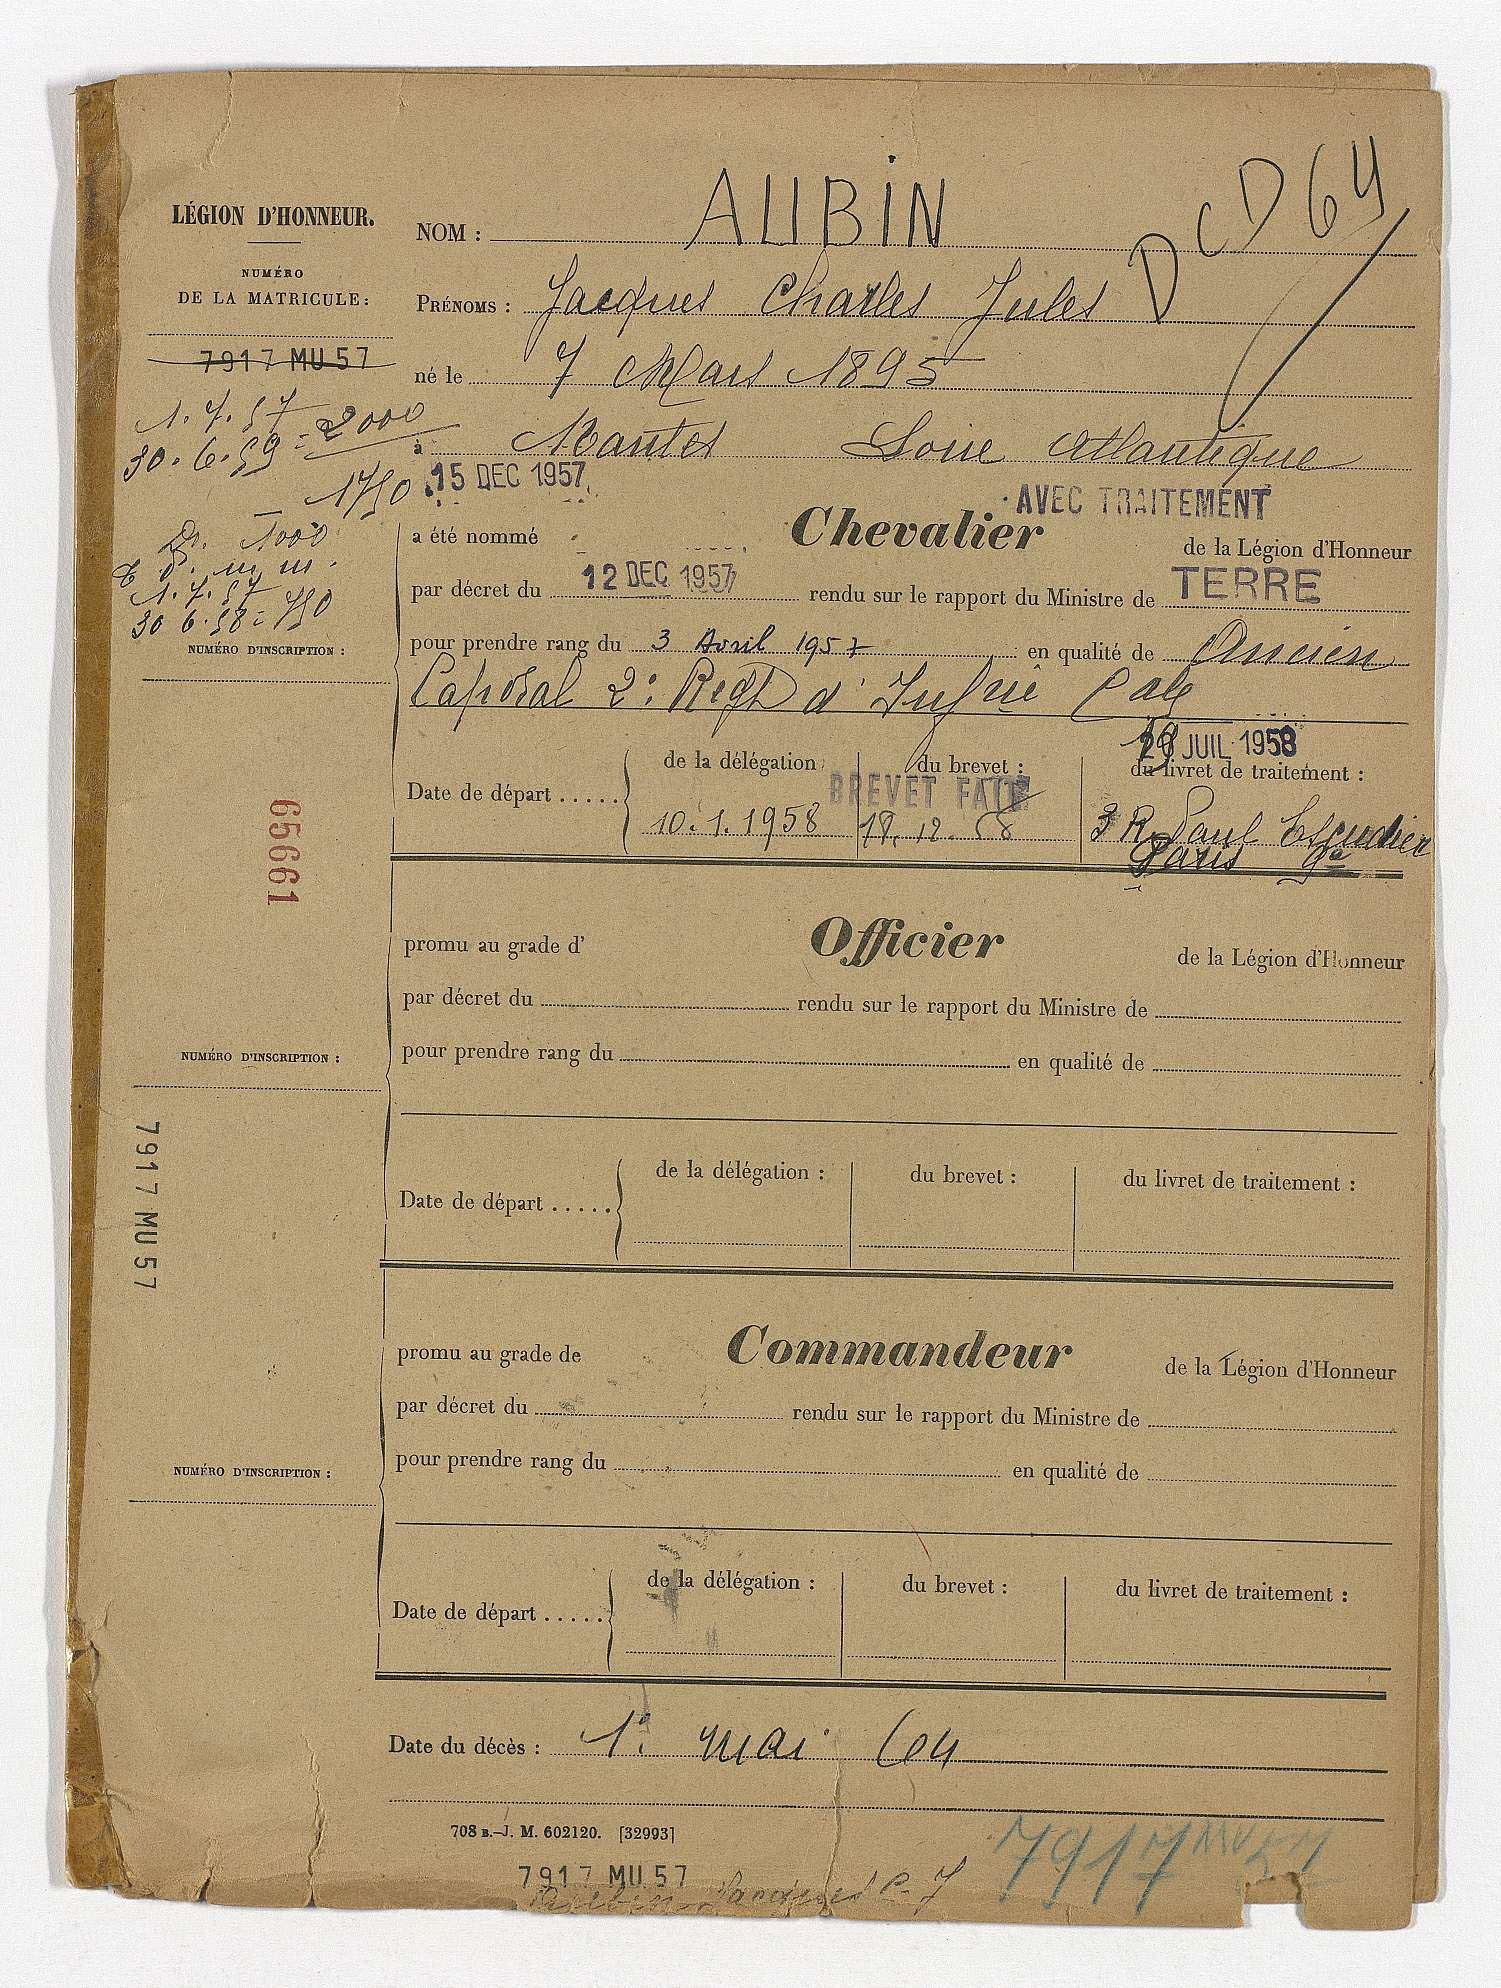 LÉGION D'HONNEUR.
NUMÉRO
DE LA MATRICULE :
7917 MU 57
1.7.57
30.6.59 = 2000
1750
Dr. 1000
1.7.57
30 6.58 = 750
NUMÉRO D'INSCRIPTION :
65661
NUMÉRO D'INSCRIPTION :
7917 MU 57
NUMÉRO D'INSCRIPTION :
DCD 64
NOM : AUBIN
PRÉNOMS : Jacques Charles Jules
né le 7 Mars 1895
à Nantes Loire Atlantique
15 DEC 1957
AVEC TRAITEMENT
a été nommé Chevalier de la Légion d'Honneur
par décret du 12 DEC 1957 rendu sur le rapport du Ministre de TERRE
pour prendre rang du 3 Avril 1957 en qualité de Ancien
Caporal 2e Regt d'Infrie Cale
29 JUIL 1958
Date de départ ..... de la délégation du brevet : du livret de traitement :
BREVET FAIT
10.1.1958 18.12.58 3 R. Paul Escudier
Paris 9e
promu au grade d' Officier de la Légion d'Honneur
par décret du rendu sur le rapport du Ministre de
pour prendre rang du en qualité de
Date de départ ..... de la délégation : du brevet : du livret de traitement :
promu au grade de Commandeur de la Légion d'Honneur
par décret du rendu sur le rapport du Ministre de
pour prendre rang du en qualité de
Date de départ ..... de la délégation : du brevet : du livret de traitement :
Date du décès : 1er mai 64
708 B.–J. M. 602120. [32993]
7917 MU 57
7917 MU 57
Aubin Jacques C. J